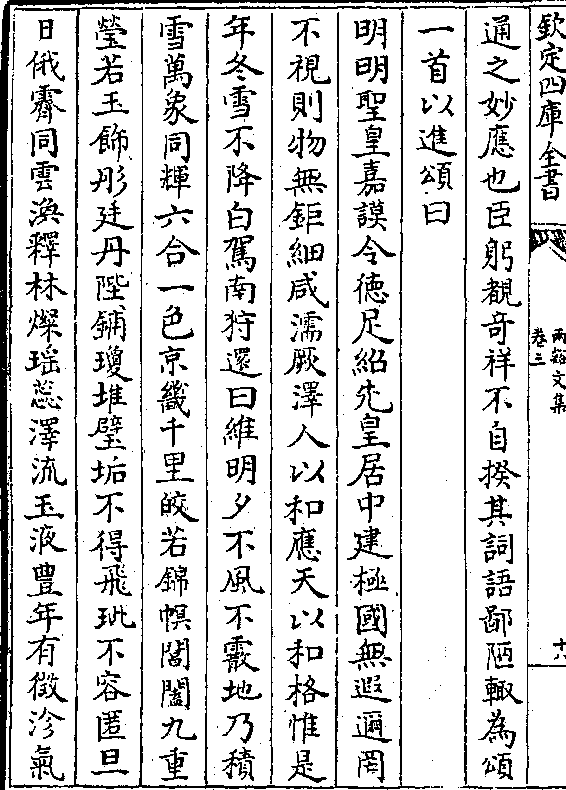 欽定四庫全書
兩谿文集
卷三
十八
通之妙應也臣躬覩奇祥不自揆其詞語鄙陋輙為頌
一首以進頌曰
明明聖皇嘉謨令徳足紹先皇居中建極國無遐邇罔
不視則物無鉅細咸濡厥澤人以和應天以和格惟是
年冬雪不降白駕南狩還曰維明夕不風不霰地乃積
雪萬象同輝六合一色京畿千里皎若錦幎閶闔九重
瑩若玉飾彤廷丹陛鋪瓊堆璧垢不得飛玼不容匿旦
日俄霽同雲渙釋林燦瑶蕊澤流玉液豊年有徵沴氣